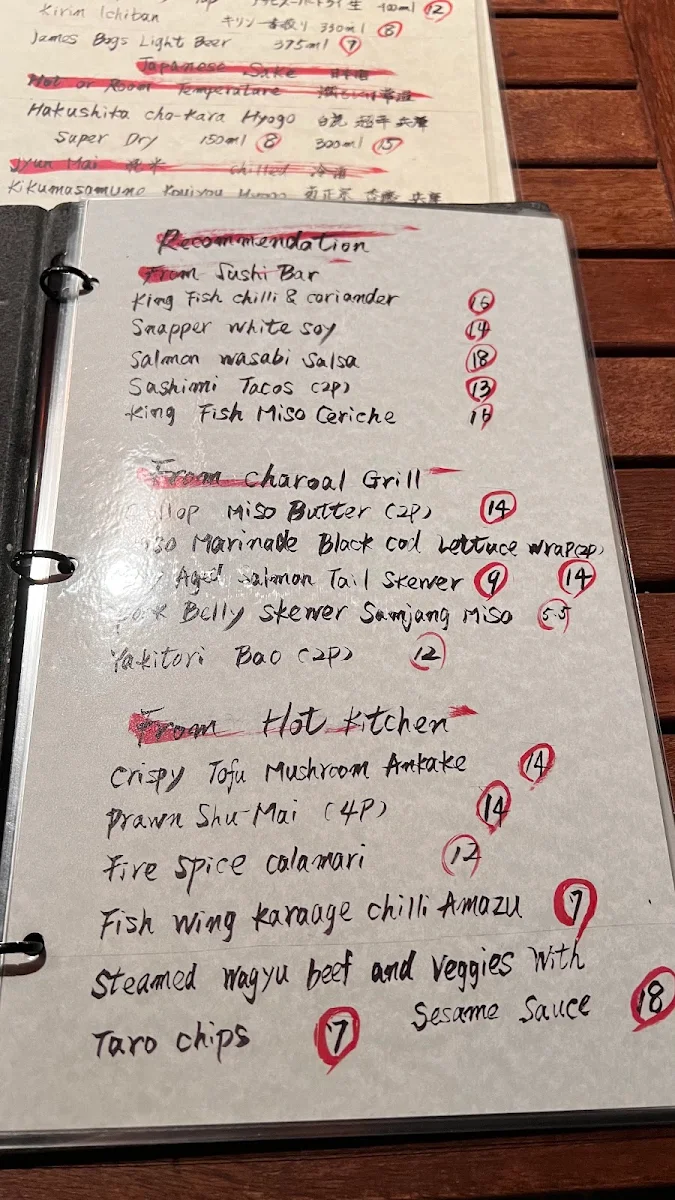 Kirin Ichiban キリン一番搾り 330ml 8
12
James Bogs Light Beer 375ml 7
Japanese Sake 日本酒
Hot or Room Temperature
Hakushika cho-kara Hyogo 白鹿 超辛 兵庫
Super Dry 150ml 8 300ml 15
Jyun Mai 純米 chilled 冷酒
Kikumasamune 菊正宗 兵庫
Recommendation
From Sushi Bar
King Fish chilli & coriander 16
Snapper white soy 14
Salmon wasabi salsa 18
Sashimi Tacos (2P) 13
King Fish Miso Ceriche 16
From charoal Grill
Miso Butter (2P) 14
Marinade Black cod Lettuce wrap(2p)
Aged Salmon Tail Skewer 9 14
Belly skewer Samjang Miso 5.5
Yakitori Bao (2P) 12
From Hot kitchen
Crispy Tofu Mushroom Ankake 14
Prawn Shu-Mai (4P) 14
Fire spice calamari 12
Fish wing karaage chilli Amazu 7
Steamed wagyu beef and veggies with
Sesame Sauce 18
Taro chips 7